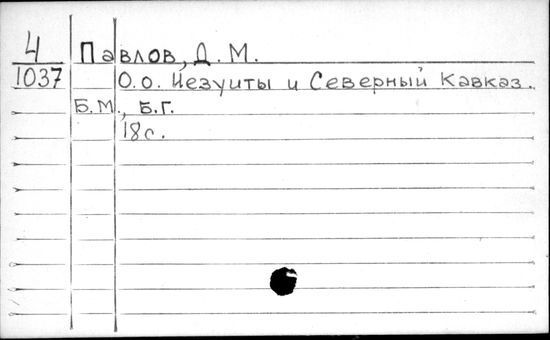 4 Павлов, Д. М.
1037 О.о. Иезуиты и Северный Кавказ.
Б.М., Б.Г.
18с.